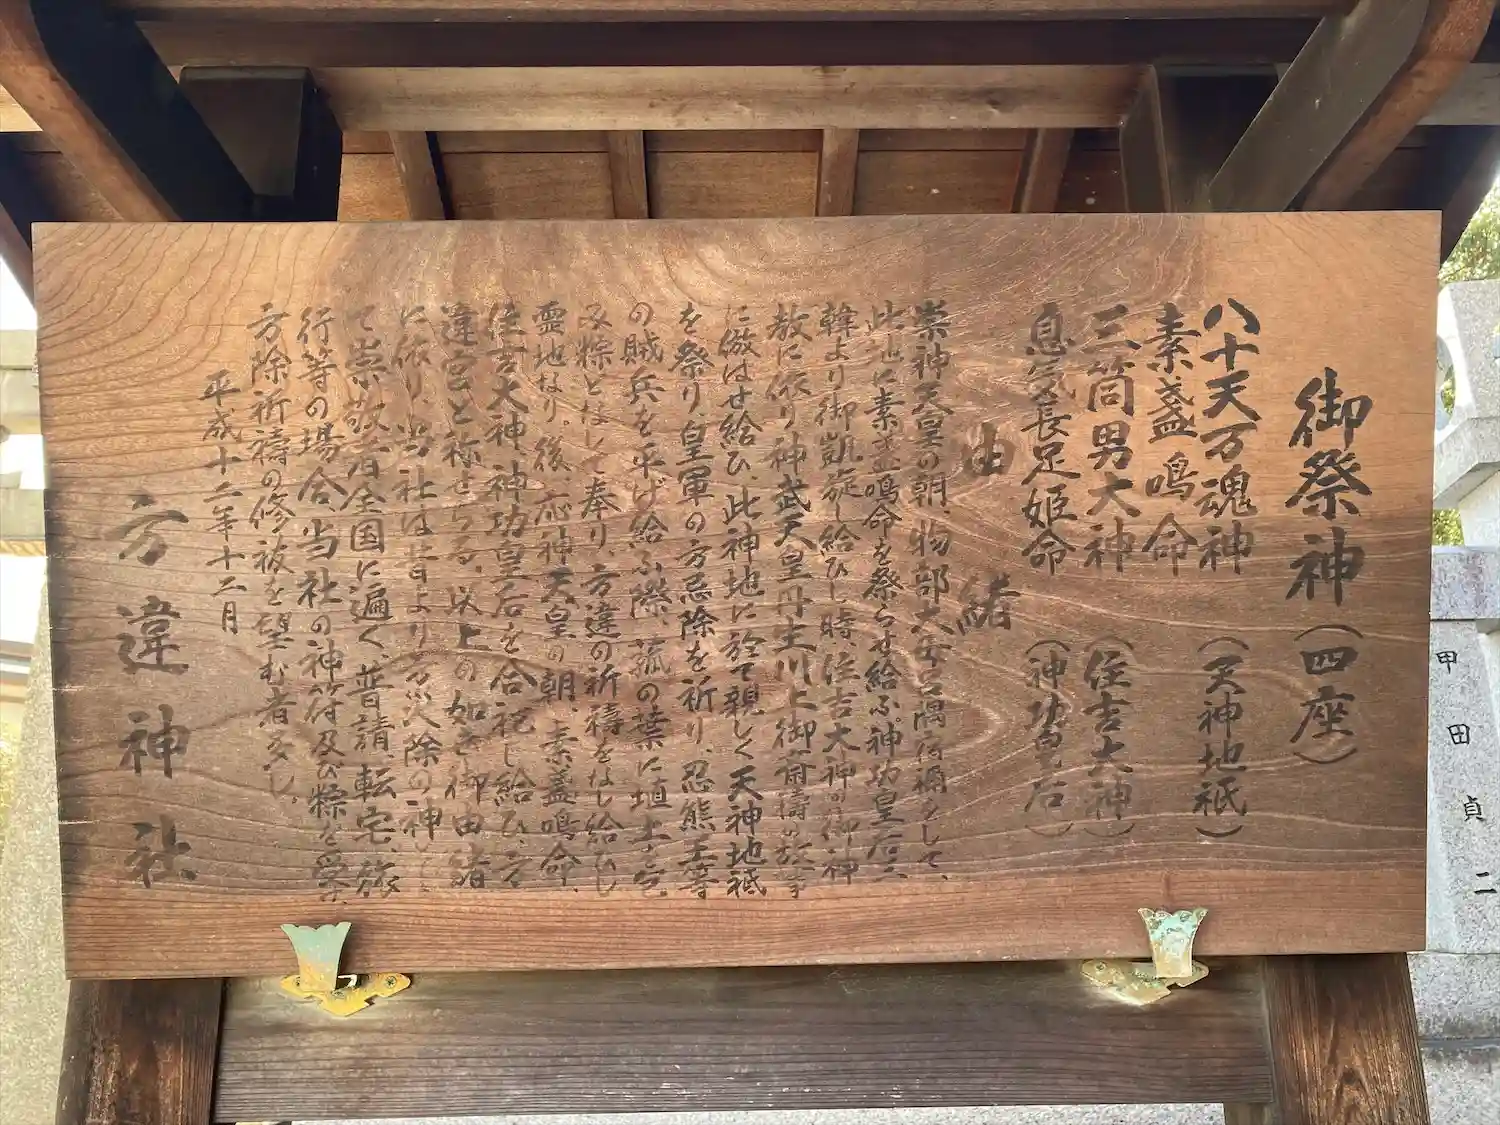 御祭神(四座)
八十天万魂神(天神地祇)
素盞鳴命
三筒男大神(住吉大神)
息気長足姫命(神功皇后)
由緒
崇神天皇の朝、物部大母呂隅宿禰をして、
此地に素盞鳴命を祭らせ給ふ。神功皇后三
韓より御凱旋し給ひし時、住吉大神の御神
教に依り神武天皇丹生川上御斎祷の故事
に倣はせ給ひ、此神地に於て親しく天神地祇
を祭り、皇軍の方忌除を祈り、忍熊王等
の賊兵を平げ給ふ際、菰の葉に埴土を包
み粽となして奉り、方違の祈祷をなし給ひし
霊地なり。後、応神天皇の朝、素盞鳴命、
住吉大神、神功皇后を合祀し給ひ、方
違宮と称せらる、以上の如き御由緒
に依り、当社は昔より方災除の神とし
て崇敬者全国に遍く、普請、転宅、旅
行等の場合、当社の神符及び粽を受け
方除祈祷の修祓を望む者多し。
平成十二年十二月
方違神社
甲田貞二